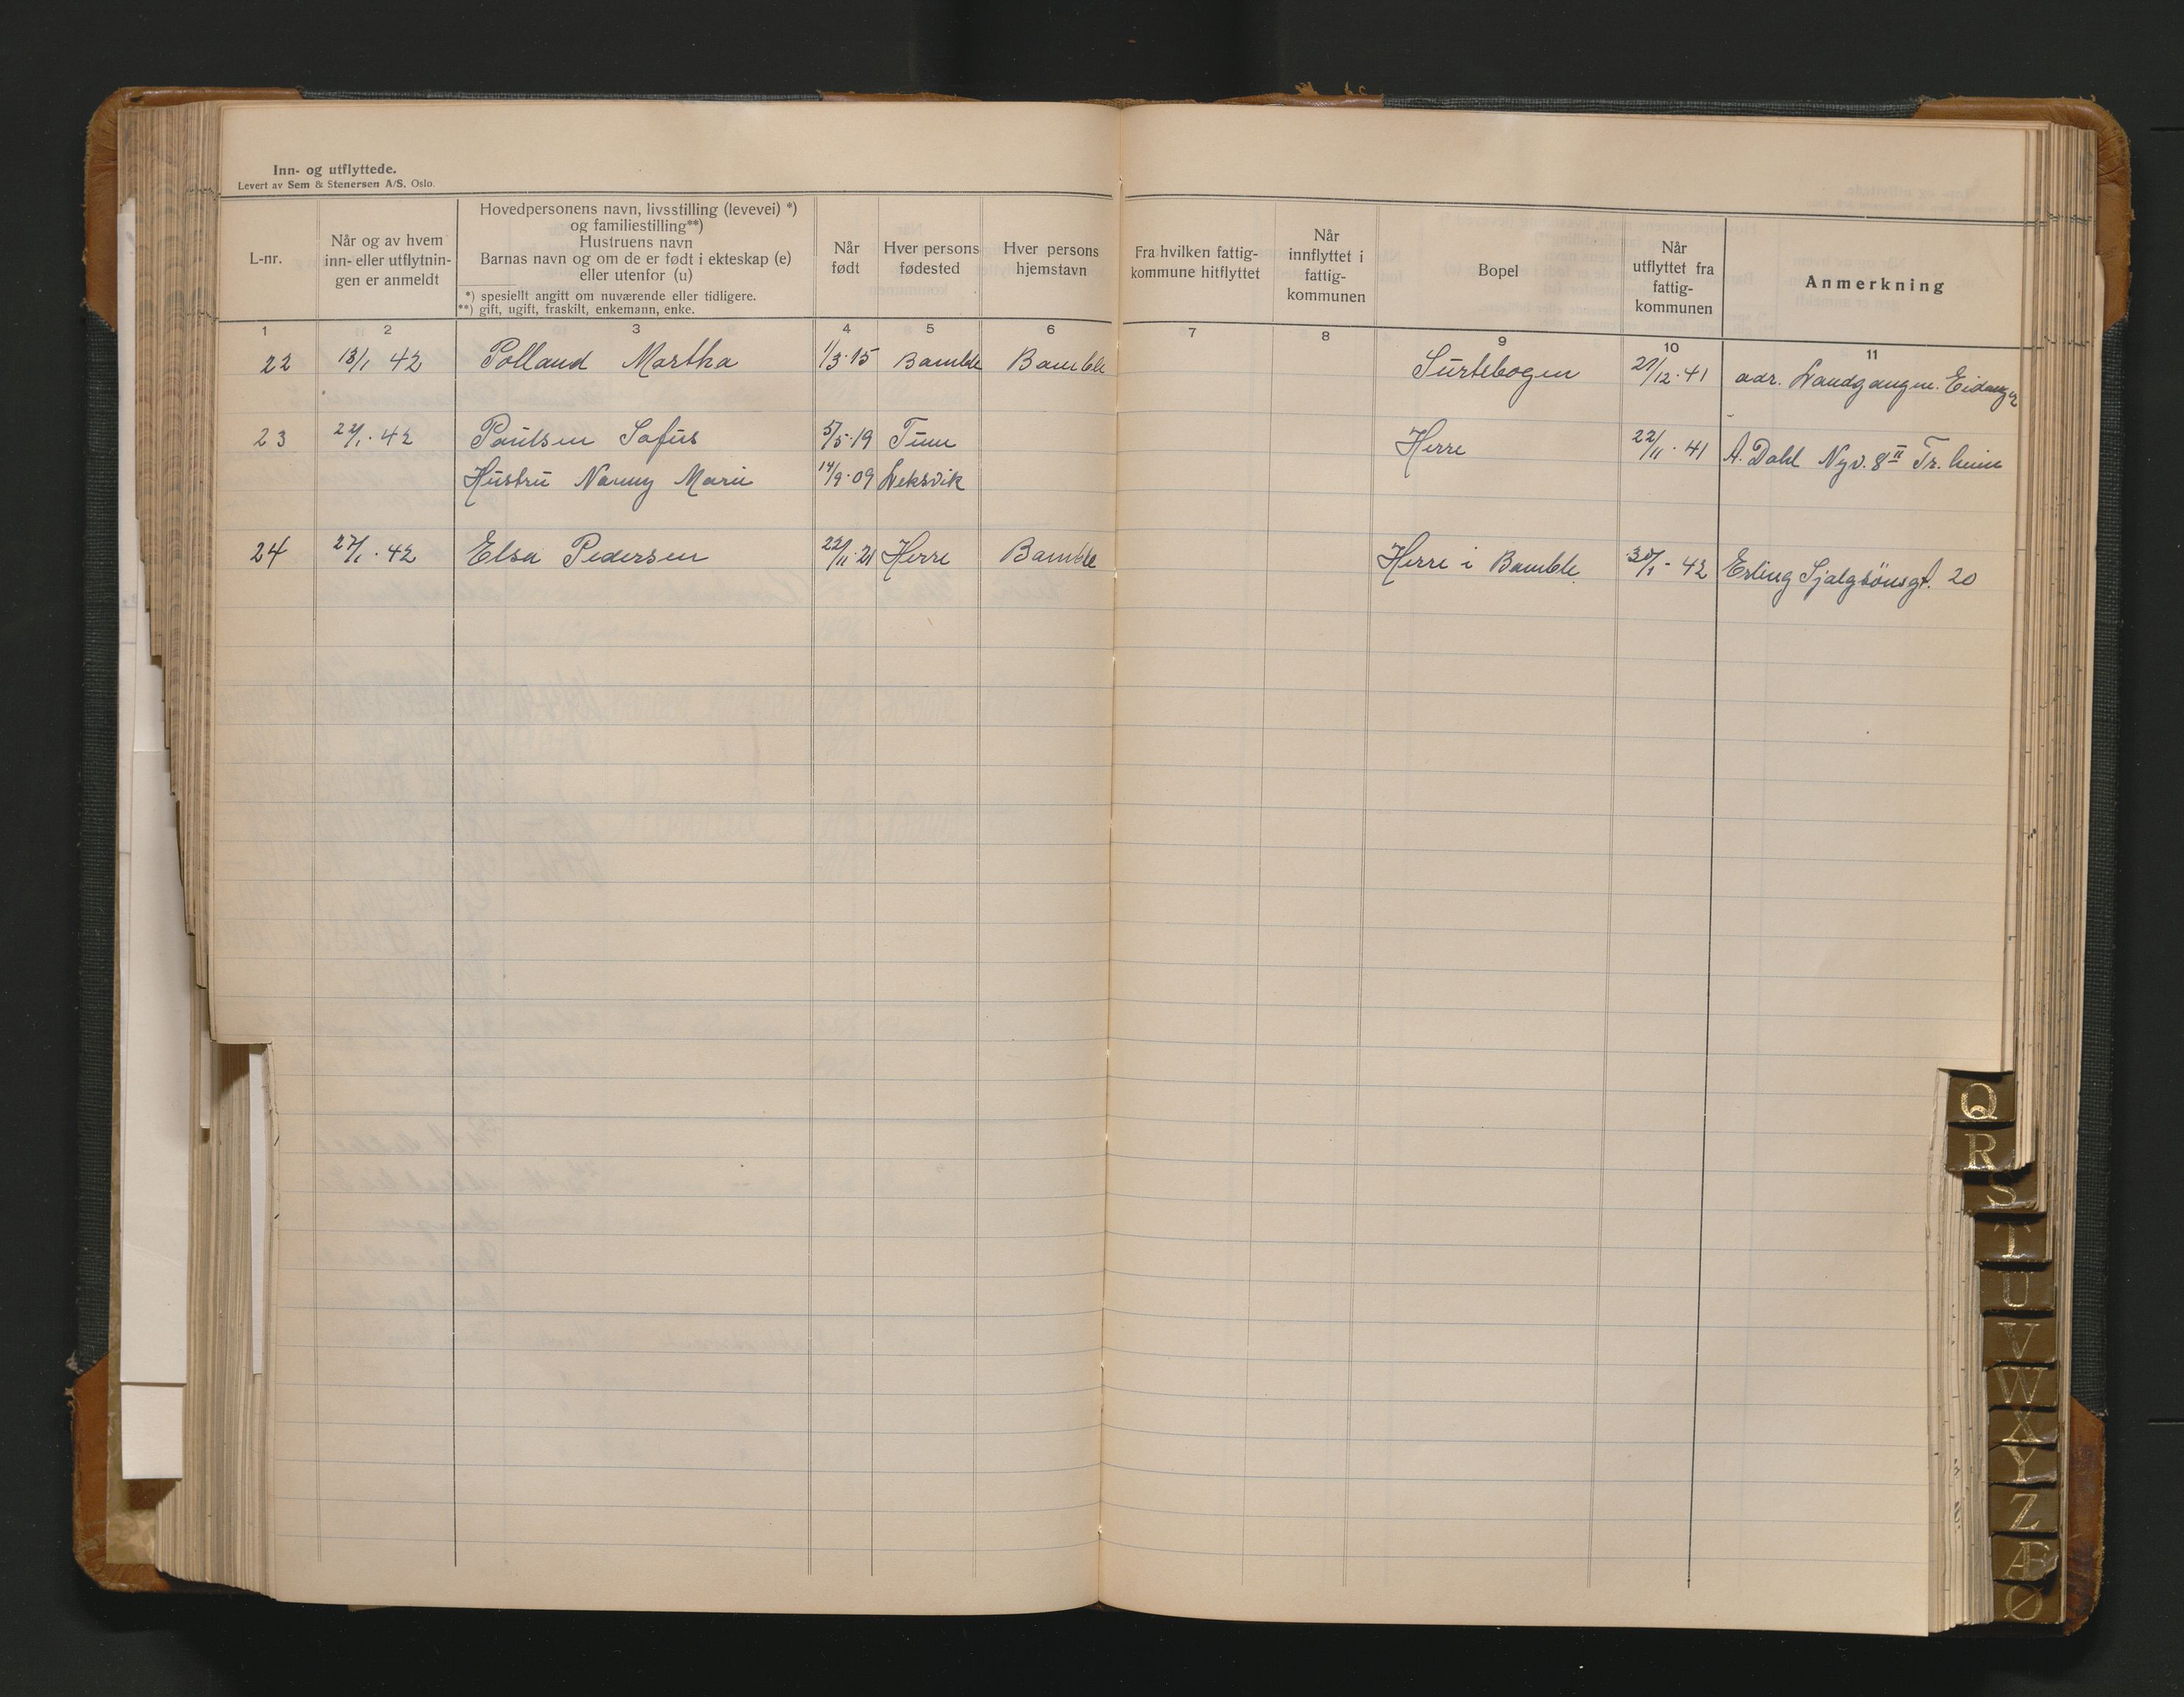 Inn- og utflyttede.
Levert av Sem & Stenersen A/S. Oslo.
L-nr.
Når og av hvem
inn- eller utflytnin-
gen er anmeldt
Hovedpersonens navn, livsstilling (levevei) *)
og familiestilling**)
Hustruens navn
Barnas navn og om de er født i ekteskap (e)
eller utenfor (u)
*) spesiellt angitt om nuværende eller tidligere.
**) gift, ugift, fraskilt, enkemann, enke.
Når
født
Hver persons
fødested
Hver persons
hjemstavn
Fra hvilken fattig-
kommune hitflyttet
Når
innflyttet i
fattig-
kommunen
Bopel
Når
utflyttet fra
fattig-
kommunen
Anmerkning
1 2 3 4 5 6 7 8 9 10 11
22 13/1 42 Polland Martha 1/3·15 Bamble Bamble Surtebogen 27/12·41 adr. Landgangen. Eidanger
23 22/1·42 Paulsen Sofus 5/5·19 Tune Herre 22/11·41 A. Dahl Nyv. 8 II Tr.heim
Hustru Nanny Marie 14/9·09 Leksvik
24 27/1·42 Elsa Pedersen 22/11·21 Herre Bamble Herre i Bamble 30/1-42 Erling Sjalgsönsgt. 20
Q
R
S
T
U
V
W
X
Y
Z
Æ
Ø